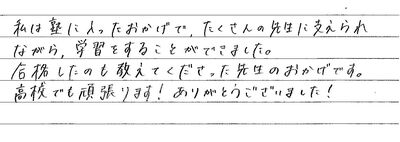 私は塾に入ったおかげで、たくさんの先生に支えられ
ながら、学習をすることができました。
合格したのも教えてくださった先生のおかげです。
高校でも頑張ります！ありがとうございました！